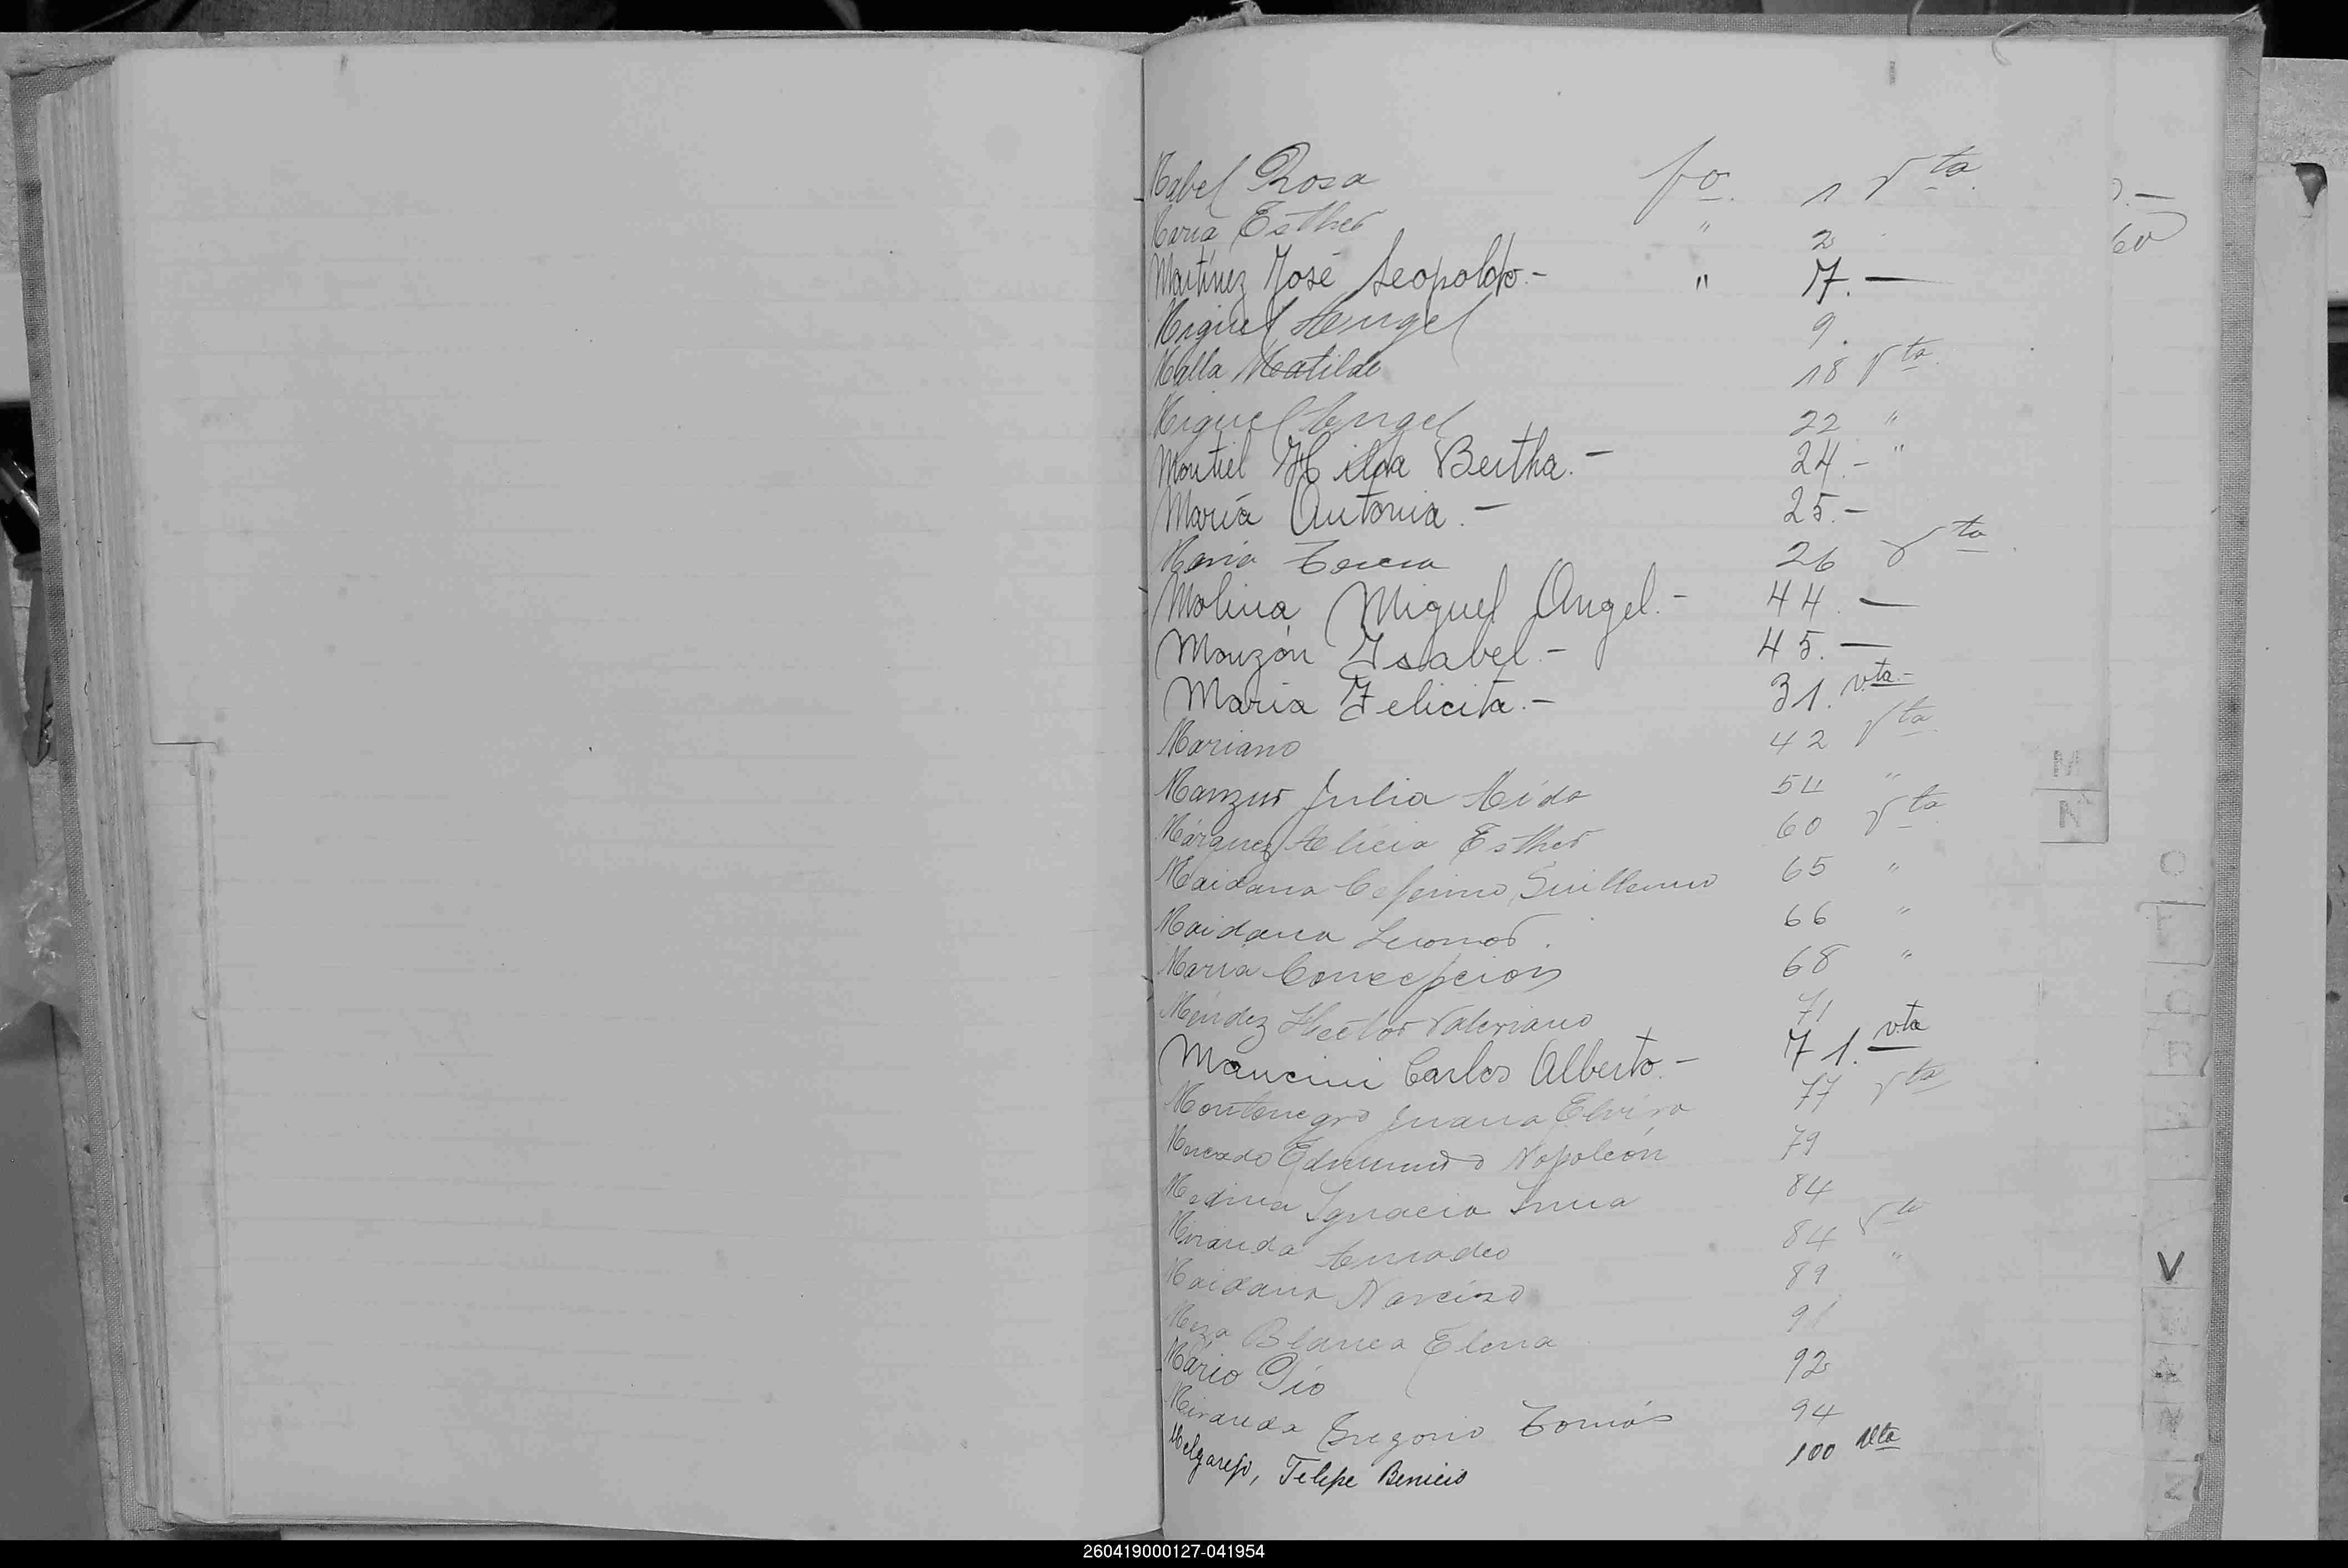 Mabel Rosa fo. 1 Vta.
María Esther " 2
Martínez José Leopoldo.- " 7.—
Miguel Angel 9.
Malla Matilde 18 Vta.
Miguel Angel 22 "
Montiel Hilda Bertha.- 24.- "
María Antonia.- 25.-
María 26 Vta
Molina Miguel Angel.- 44.—
Monzón Ysabel.- 45.—
María Felicita.- 31. vta.-
Mariano 42 Vta.
Manzur Julia Aída 54 "
Márquez Alicia Esther 60 Vta.
Maidana Ceferino Guillermo 65 "
Maidana Leonor. 66 "
María Concepción 68 "
Méndez Hector Valeriano 71
Mancini Carlos Alberto.- 71. vta
Montenegro Juana Elvira 77 Vta
Mercado Edmundo Napoleón 79
Medina Ignacia 84
Miranda Amadeo 84 Vta
Maidana Narciso 89 "
Meza Blanca Elena 91
Mario Pío 92
Miranda Gregorio Tomás 94
Melgarejo, Felipe Benicio 100 Vta
60
M
N
O
P
Q
R
V
260419000127-041954